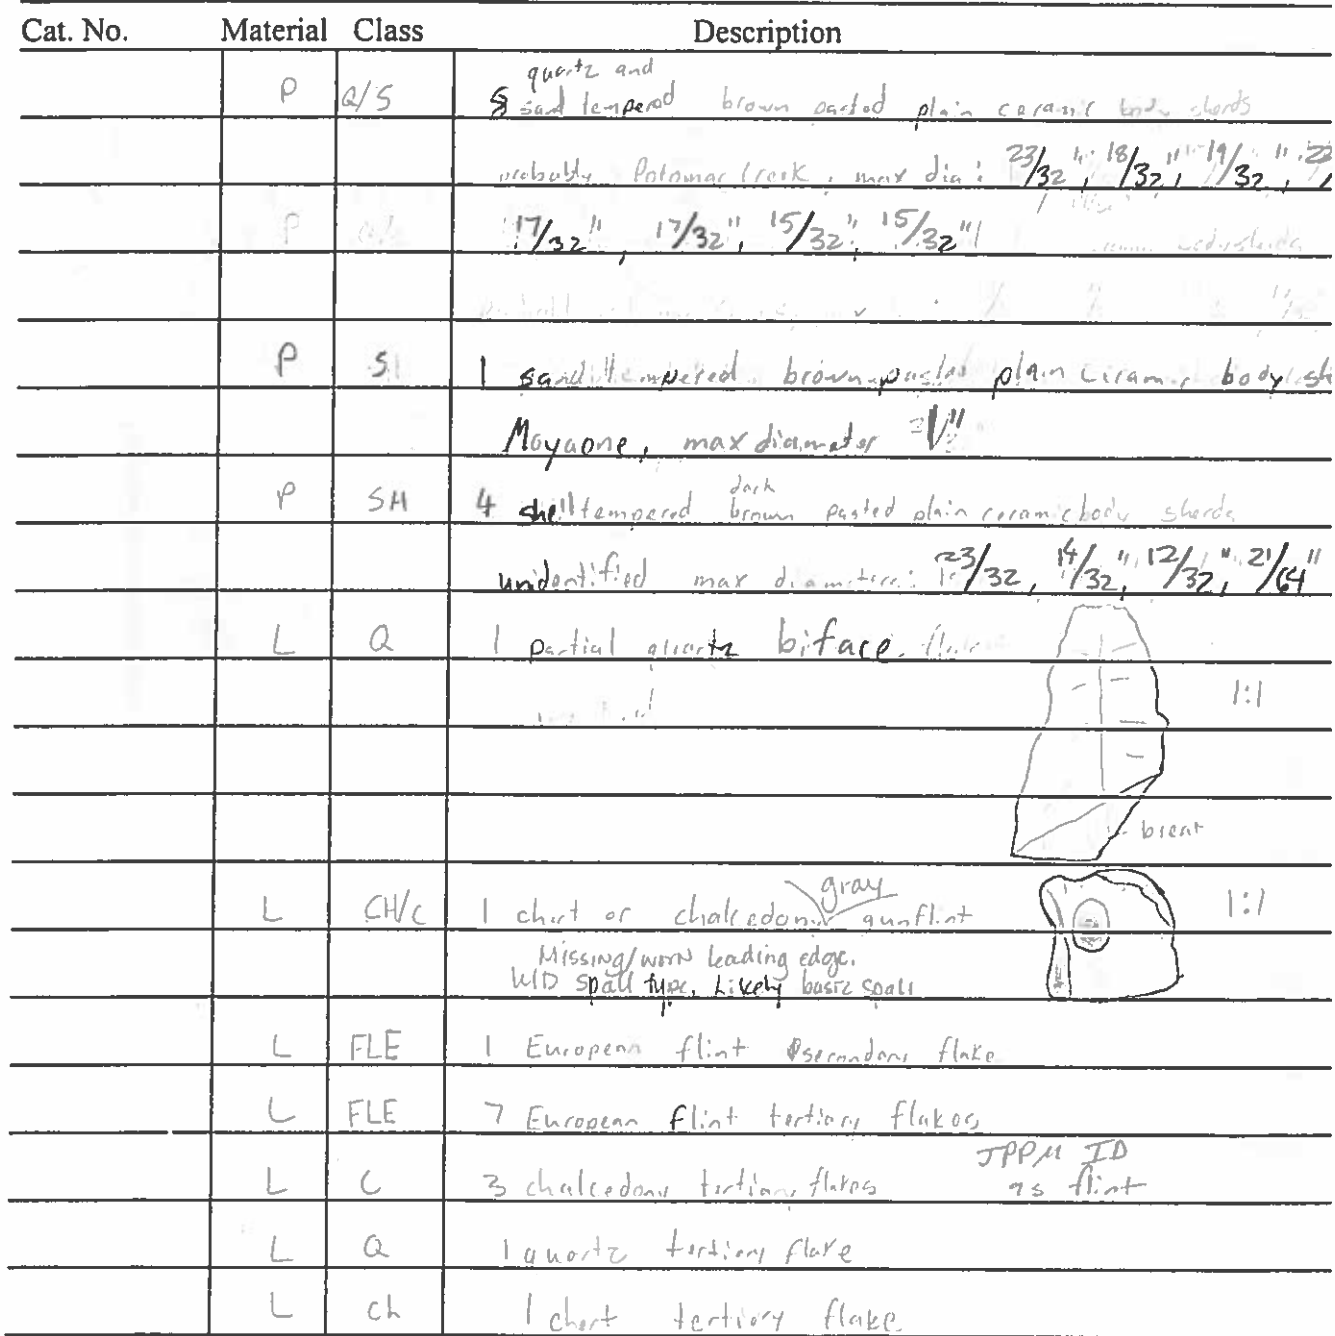 Cat. No. Material Class Description
P Q/S quartz and
sand tempered brown pasted plain ceramic body sherds
probably Potomac Creek, max dia: 23/32", 18/32", 19/32",
P 17/32", 17/32", 15/32", 15/32"
P S 1 sand tempered brown pasted plain ceramic body
Moyaone, max diameter
dark
P SH 4 shell tempered brown pasted plain ceramic body sherds
unidentified max diameters: 23/32, 14/32", 12/32", 21/64"
L Q 1 partial quartz biface
1:1
break
gray
L CH/C 1 chert or chalcedony gunflint 1:1
Missing/worn leading edge.
UID spall type, Likely basic spall
L FLE 1 European flint secondary flake
L FLE 7 European flint tertiary flakes
JPPM ID
L C 3 chalcedony tertiary flakes as flint
L Q 1 quartz tertiary flake
L Ch 1 chert tertiary flake